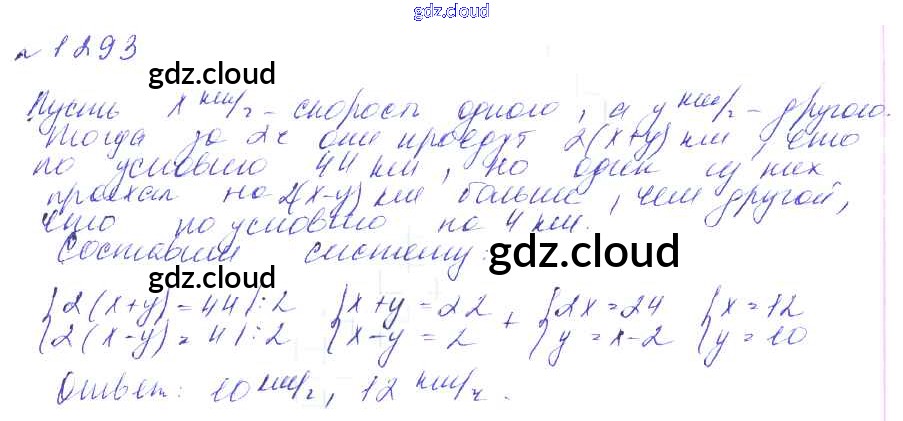 gdz.cloud
№ 1293
gdz.cloud
Пусть x км/ч - скорость одного, а y км/ч - другого.
Тогда за 2ч они проедут 2(x+y) км, что
gdz.cloud gdz.cloud
по условию 44 км, но один из них
проехал на 2(x-y) км больше, чем другой,
что по условию на 4 км.
gdz.cloud
Составим систему:
gdz.cloud
{2(x+y)=44|:2 {x+y=22 {2x=24 {x=12
{2(x-y)=4|:2 {x-y=2 + {y=x-2 {y=10
gdz.cloud
Ответ: 10 км/ч, 12 км/ч.